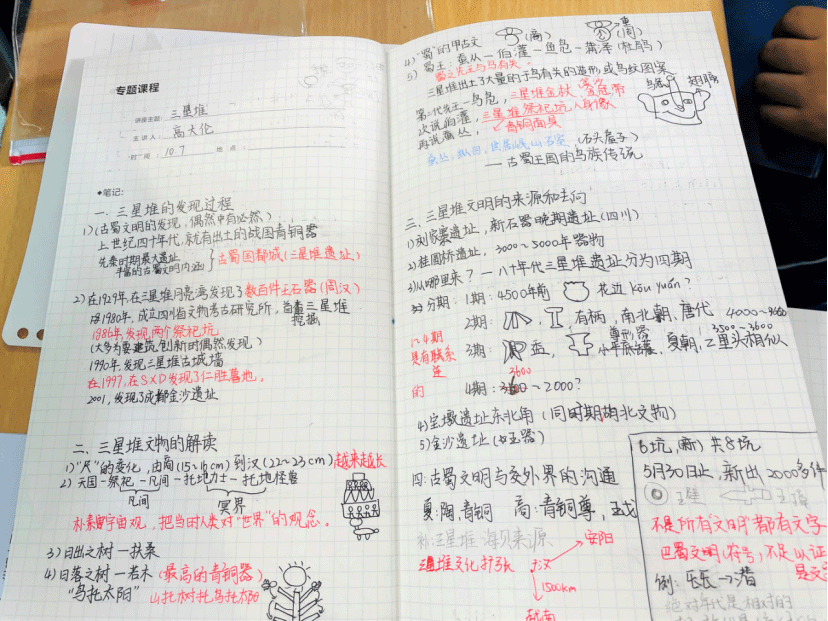 专题课程
讲座主题: 三星堆
主讲人: 高大伦
时间: 10.7 地点:
◆笔记:
一、三星堆的发现过程
1)(古蜀文明的发现,偶然中有必然)
上世纪四十年代,就有出土的战国青铜器
先秦时期最大遗址
丰富的古蜀文明内涵
古蜀国都城(三星堆遗址)
2)在1929年,在三星堆月亮湾发现了数百件玉石器(商汉)
1980年,成立四川省文物考古研究所,首查三星堆
挖掘
1986年发现两个祭祀坑
(大多为要建筑创新时偶然发现)
1990年,发现三星堆古城墙
在1997,在SXD发现了仁胜墓地。
2001,发现了成都金沙遗址
二、三星堆文物的解读
1)“尺”的变化,由商(15~16cm)到汉(22~23cm)越来越长
2)天国—祭祀—凡间—托地力士—托地怪兽
凡间 冥界
朴素宇宙观,把当时人类对“世界”的观念。
3)日出之树—扶桑
4)日落之树—若木(最高的青铜器)
“乌托太阳” 山托树托鸟托太阳
4)“蜀”的甲古文 (商) (周)
5)蜀王:蚕丛—伯灌—鱼凫—蒲泽(杜鹃)
蜀之先王与鸟有关。
三星堆出土了大量的于鸟有关的造形或鸟纹图案
第二代先王—鸟凫,三星堆金杖、金沙金冠带
次说伯灌,三星堆祭祀坑人身像
再说蚕丛,青铜面具
(石头屋子)
——古蜀王国的鸟族传统
三、三星堆文明的来源和去向
1)刘家寨遗址,新石器晚期遗址(四川)
2)桂圆桥遗址,3000~5000年器物
3)从哪里来?—八十年代三星堆遗址分为四期
分期: 1期: 4500年前 花边kǒu yuán?
2期: , ,有柄,南北朝,唐代 4000~3600
1~4期
是有联系
的
3期: 盉, 尊形器 小平底罐,夏朝,二里头相似 3500~3600
4期: 3600~2000?
4)宝墩遗址东北角(同时期湖北文物)
5)金沙遗址(如玉器)
四:古蜀文明与交外界的沟通
夏:陶,青铜 商:青铜尊,玉戈
补:三星堆海贝来源
三星堆文化扩张
安阳
1500km
越南
6坑,(新)共8坑
5月30日止,新出2000多件
玉璧
不是所有“文明”都有文字
巴蜀文明(符号)不足以证
例:
绝对年代是相对的